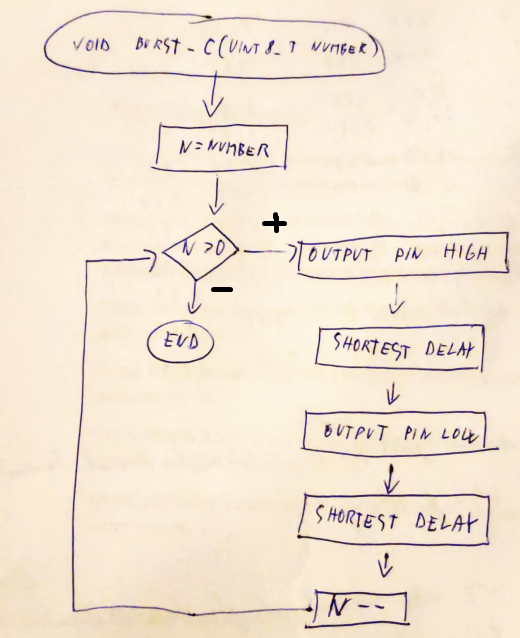 VOID BURST_C(UINT8_T NUMBER)
N=NUMBER
N>0
+
OUTPUT PIN HIGH
-
END
SHORTEST DELAY
OUTPUT PIN LOW
SHORTEST DELAY
N--